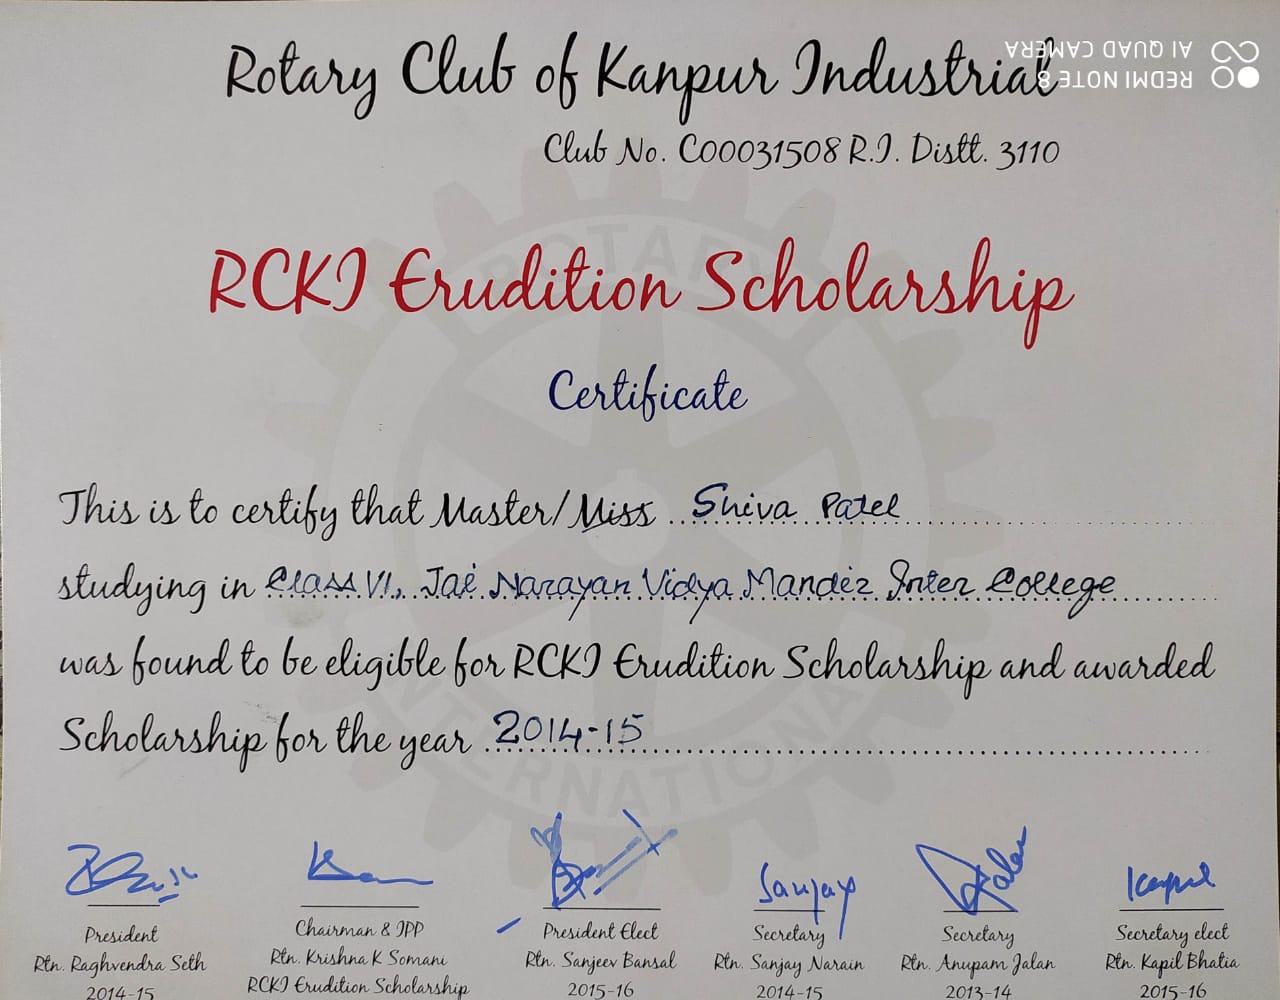 Rotary Club of Kanpur Industrial
REDMI NOTE 8
AI QUAD CAMERA
Club No. C00031508 R.I. Distt. 3110
RCKI Erudition Scholarship
Certificate
This is to certify that Master/Miss Shiva Patel
studying in Class VI, Jai Narayan Vidya Mandir Inter College
was found to be eligible for RCKI Erudition Scholarship and awarded
Scholarship for the year 2014-15
ROTARY
INTERNATIONAL
Sanjay
Kapil
President
Rtn. Raghvendra Seth
2014-15
Chairman & IPP
Rtn. Krishna K Somani
RCKI Erudition Scholarship
President Elect
Rtn. Sanjeev Bansal
2015-16
Secretary
Rtn. Sanjay Narain
2014-15
Secretary
Rtn. Anupam Jalan
2013-14
Secretary elect
Rtn. Kapil Bhatia
2015-16